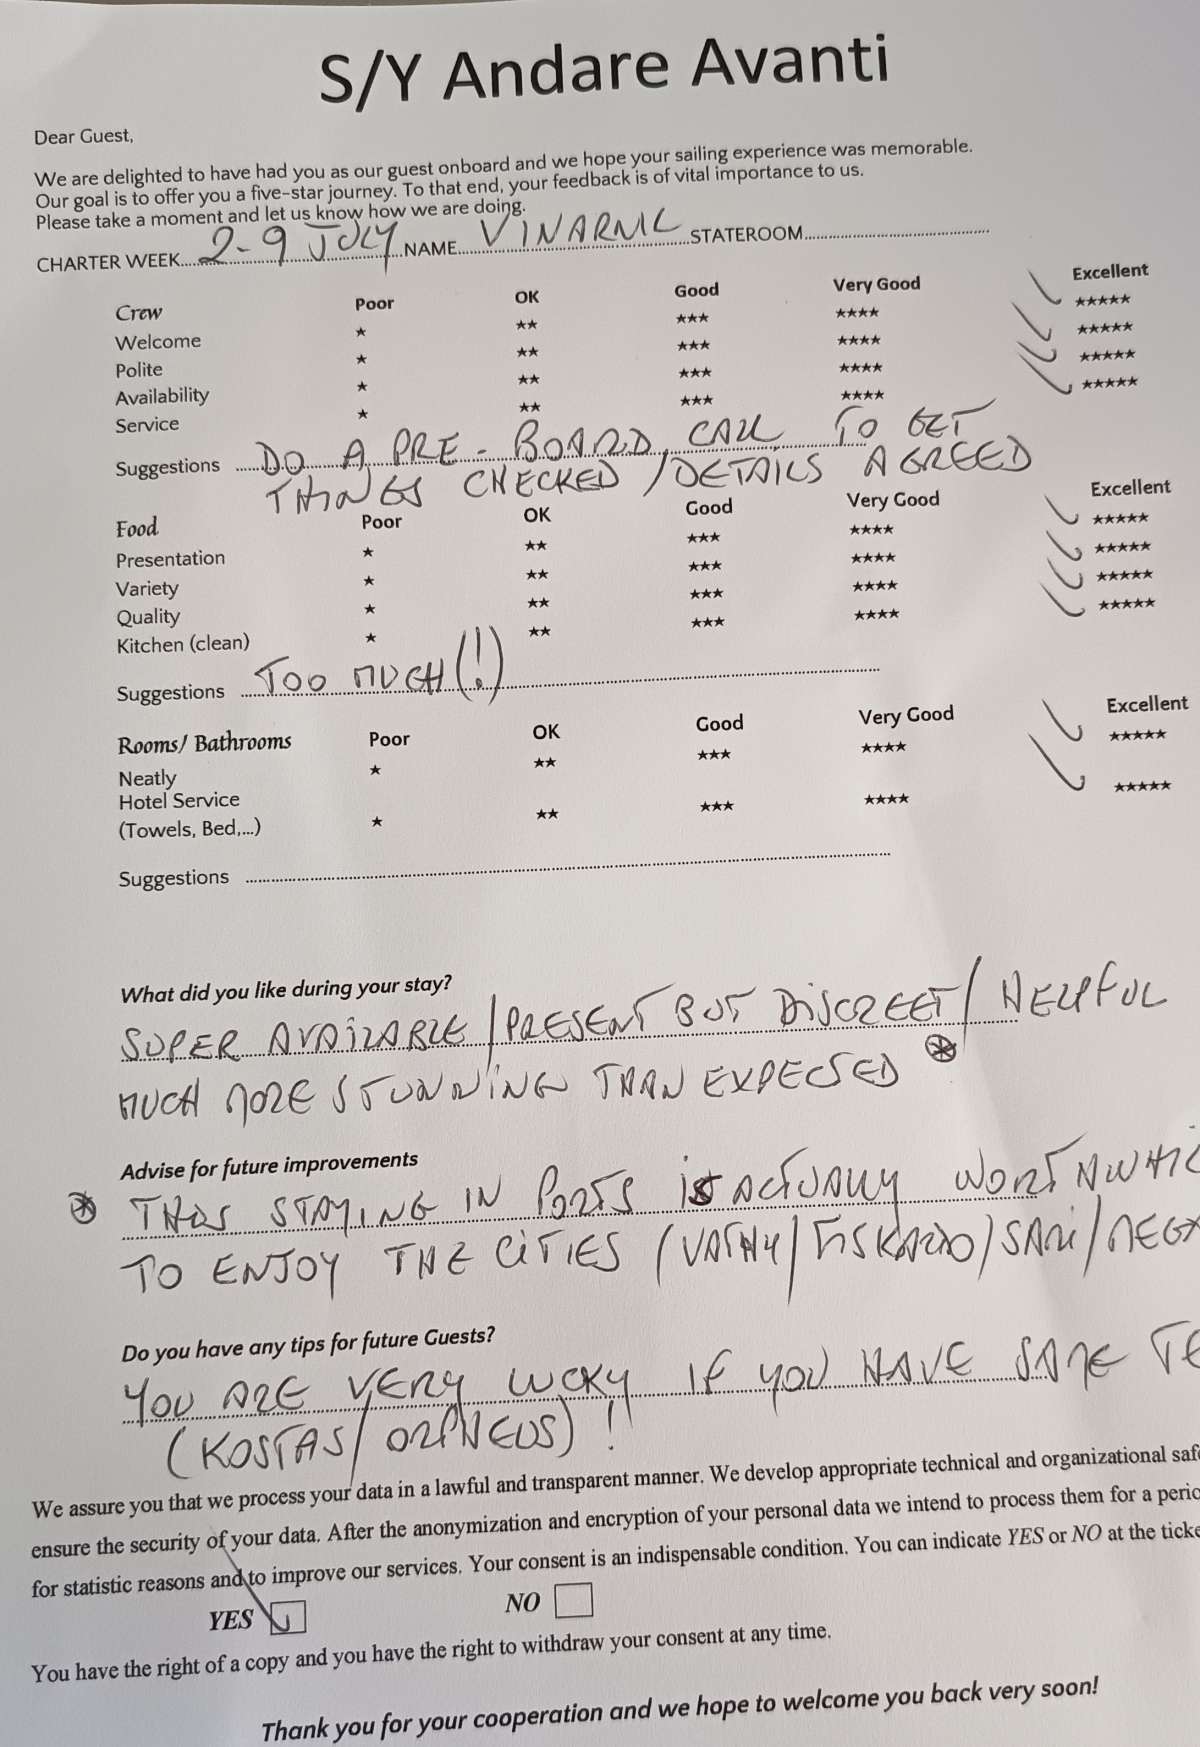 S/Y Andare Avanti
Dear Guest,
We are delighted to have had you as our guest onboard and we hope your sailing experience was memorable.
Our goal is to offer you a five-star journey. To that end, your feedback is of vital importance to us.
Please take a moment and let us know how we are doing.
CHARTER WEEK 2-9 JULY NAME STATEROOM
Crew Poor OK Good Very Good Excellent
Welcome ★ ★★ ★★★ ★★★★ ★★★★★
Polite ★ ★★ ★★★ ★★★★ ★★★★★
Availability ★ ★★ ★★★ ★★★★ ★★★★★
Service ★ ★★ ★★★ ★★★★ ★★★★★
Suggestions DO A PRE-BOARD CALL TO GET
THINGS CHECKED / DETAILS AGREED
Food Poor OK Good Very Good Excellent
Presentation ★ ★★ ★★★ ★★★★ ★★★★★
Variety ★ ★★ ★★★ ★★★★ ★★★★★
Quality ★ ★★ ★★★ ★★★★ ★★★★★
Kitchen (clean) ★ ★★ ★★★ ★★★★ ★★★★★
Suggestions TOO MUCH (!)
Rooms/ Bathrooms Poor OK Good Very Good Excellent
Neatly ★ ★★ ★★★ ★★★★ ★★★★★
Hotel Service
(Towels, Bed,...) ★ ★★ ★★★ ★★★★ ★★★★★
Suggestions
What did you like during your stay?
SUPER AVAILABLE / PRESENT BUT DISCREET / HELPFUL
MUCH MORE STUNNING THAN EXPECTED *
Advise for future improvements
* STAYING IN PORTS IS ACTUALLY WORTHWHIL
TO ENJOY THE CITIES (VATHY / FISKARDO / SAMI / MEGA
Do you have any tips for future Guests?
YOU ARE VERY LUCKY IF YOU HAVE SAME TE
(KOSTAS / ORPHEUS) !
We assure you that we process your data in a lawful and transparent manner. We develop appropriate technical and organizational safe
ensure the security of your data. After the anonymization and encryption of your personal data we intend to process them for a perio
for statistic reasons and to improve our services. Your consent is an indispensable condition. You can indicate YES or NO at the ticke
YES NO
You have the right of a copy and you have the right to withdraw your consent at any time.
Thank you for your cooperation and we hope to welcome you back very soon!